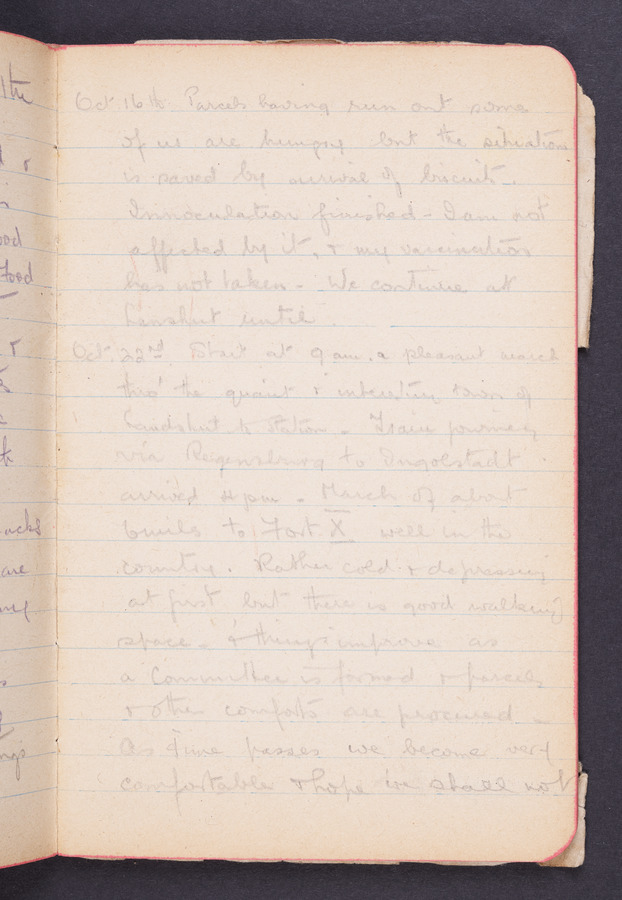 Oct. 16th Parcels having run out some
of us are hungry but the situation
is saved by arrival of biscuits.
Innoculation finished - I am not
affected by it, & my vaccination
has not taken - We continue at
Landshut until
Oct. 22nd Start at 9 am. a pleasant march
thro' the quaint & interesting town of
Landshut to station - Train journey
via Regensburg to Ingolstadt
arrived 4 pm - March of about
6 miles to Fort X well in the
country. Rather cold & depressing
at first but there is good walking
space - & things improve as
a Committee is formed & parcels
& other comforts are procured -
As time passes we become very
comfortable & hope we shall not
the
&
Food
&
acks
are